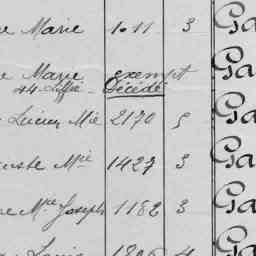 e Marie 1011 3 Ga
e Marie exempt Ga
Décédé
Lucien Mie 2170 5 Ga
uste Mie 1427 3 Ga
e Mie Joseph 1182 3 Ga
Louis 4 Ga